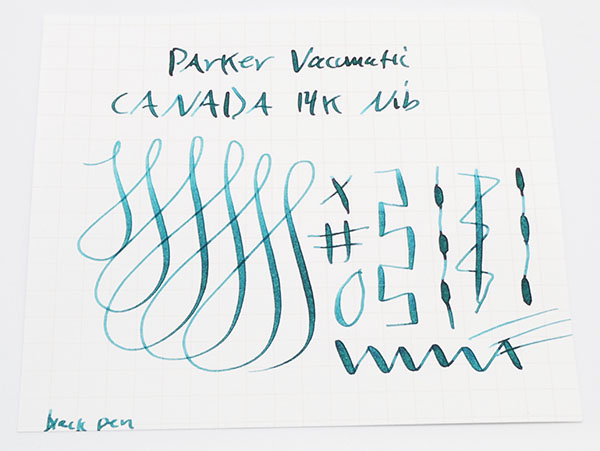 PARKER Vacumatic
CANADA 14K Nib
X
#
O
black pen